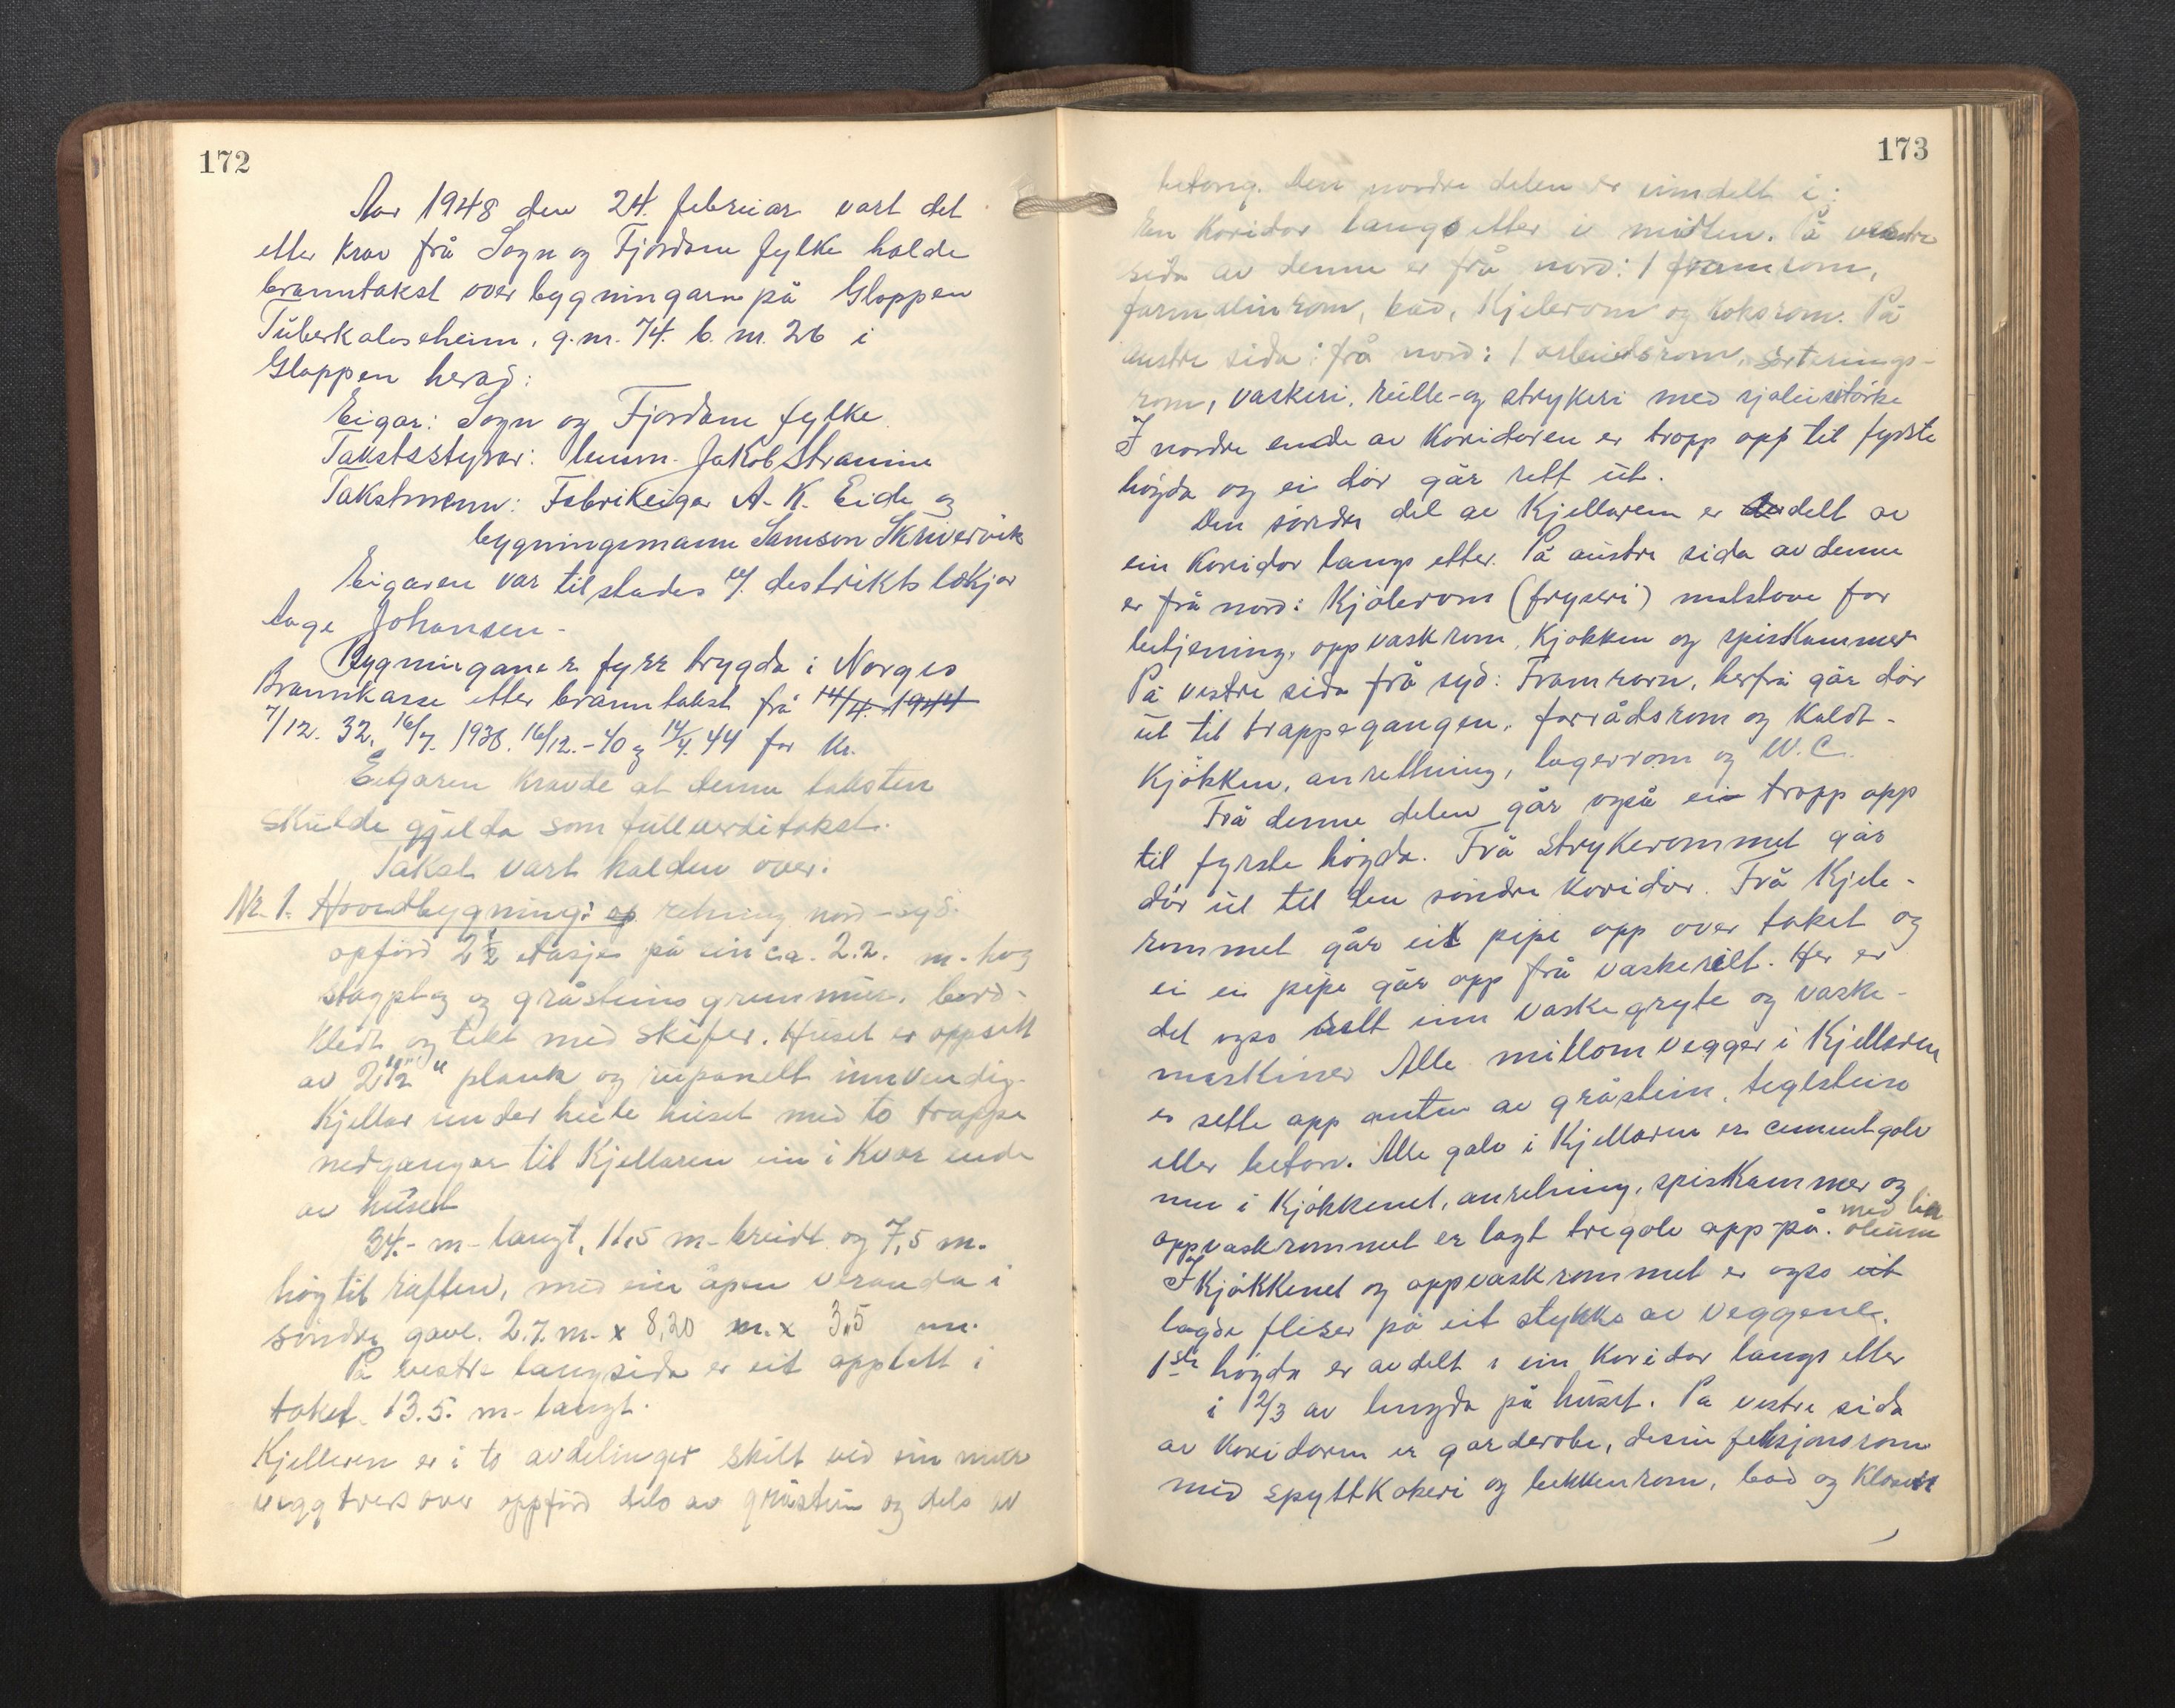 172
Aar 1948 den 24. februar vart det
etter krav frå Sogn og Fjordane fylke halde
branntakst over bygningane på Gloppen
Tuberkuloseheim, g.nr. 74. b. nr. 26 i
Gloppen herad:
Eigar: Sogn og Fjordane fylke
Takststyrar: lensm. Jakob Straume
Takstmenn: Fabrikeigar A. K. Eide og
bygningsmann Samson Skrivervik
Eigaren var tilstades v/. destriktslækjar
Johansen-
Bygningane er fyrr trygda i Norges
Brannkasse etter branntakst frå 14/4. 1944
7/12. 32. 16/7. 1938. 16/12.-40 og 14/4. 44 for kr.
Eigaren kravde at denne taksten
skulde gjelda som fullverditakst.
Takst vart halden over:
Nr. 1. Hovudbygning: op retning nord-syd.
opförd 2 1/2 etasjer på ein ca. 2.2. m. hög
og gråsteins grunnmur, bord-
kledt og tekt med skifer. Huset er oppsett
av 2 1/2" plank og rupanelt innvendig.
Kjellar under heile huset med to trappe
nedgangar til Kjellaren ein i kvar ende
av huset
34.- m- langt, 11,5 m- breidt og 7,5 m.
hög til raften, med ein åpen veranda i
söndre gavl. 2.7. m. x 8,20 m. x 3,5 m.
På vestre langsida er eit opplett i
taket 13.5. m- langt.
Kjelleren er i to avdelinger skilt ved ein mur
vegg tvers over oppförd dels av gråstein og dels av
173
betong. Den nordre delen er inndelt i:
Ein koridor langs etter i midten. På vestre
sida av denne er frå nord: 1 framrom,
formalinrom, bad, Kjelerom og koksrom. På
austre sida: frå nord: 1 arbeidsrom, sorterings-
rom, vaskeri, rulle- og strykeri med
I nordre ende av koridoren er tropp opp til fyrste
högda og ei dör går rett ut.
Den söndre del av Kjellaren er delt av
ein koridor langs etter. På austre sida av denne
er frå nord: Kjölerom (fryseri) matstove for
betjening, oppvaskrom, Kjökken og spiskammer
På vestre sida frå syd: Framrom, herfrå går dör
ut til trappegangen, forrådsrom og kaldt-
Kjökken, anrettning, lagerrom og W.C.
Frå denne delen går også ei tropp opp
til fyrste högda. Frå strykerommet går
dör ut til den söndre koridor. Frå Kjele-
rommet går ei pipe opp over taket og
ei pipe går opp frå vaskeriet. Her er
det ogso sett inn vaskegryte og vaske-
maskiner Alle millomvegger i Kjellaren
er sette opp anten av gråstein, teglstein
eller beton. Alle golv i Kjellaren er cementgolv
men i Kjökkenet, anretning, spiskammer og
oppvaskrommet er lagt tregolv opp-på. med lin
oleum
I Kjökkenet og oppvaskrommet er ogso
lagde fliser på eit stykke av veggene.
1ste högda er avdelt i ein koridor langs etter
i 2/3 av lengda på huset. På vestre sida
av koridoren er garderobe, desinfeksjonsrom
med spyttkokeri og bekkenrom, bad og Klosett